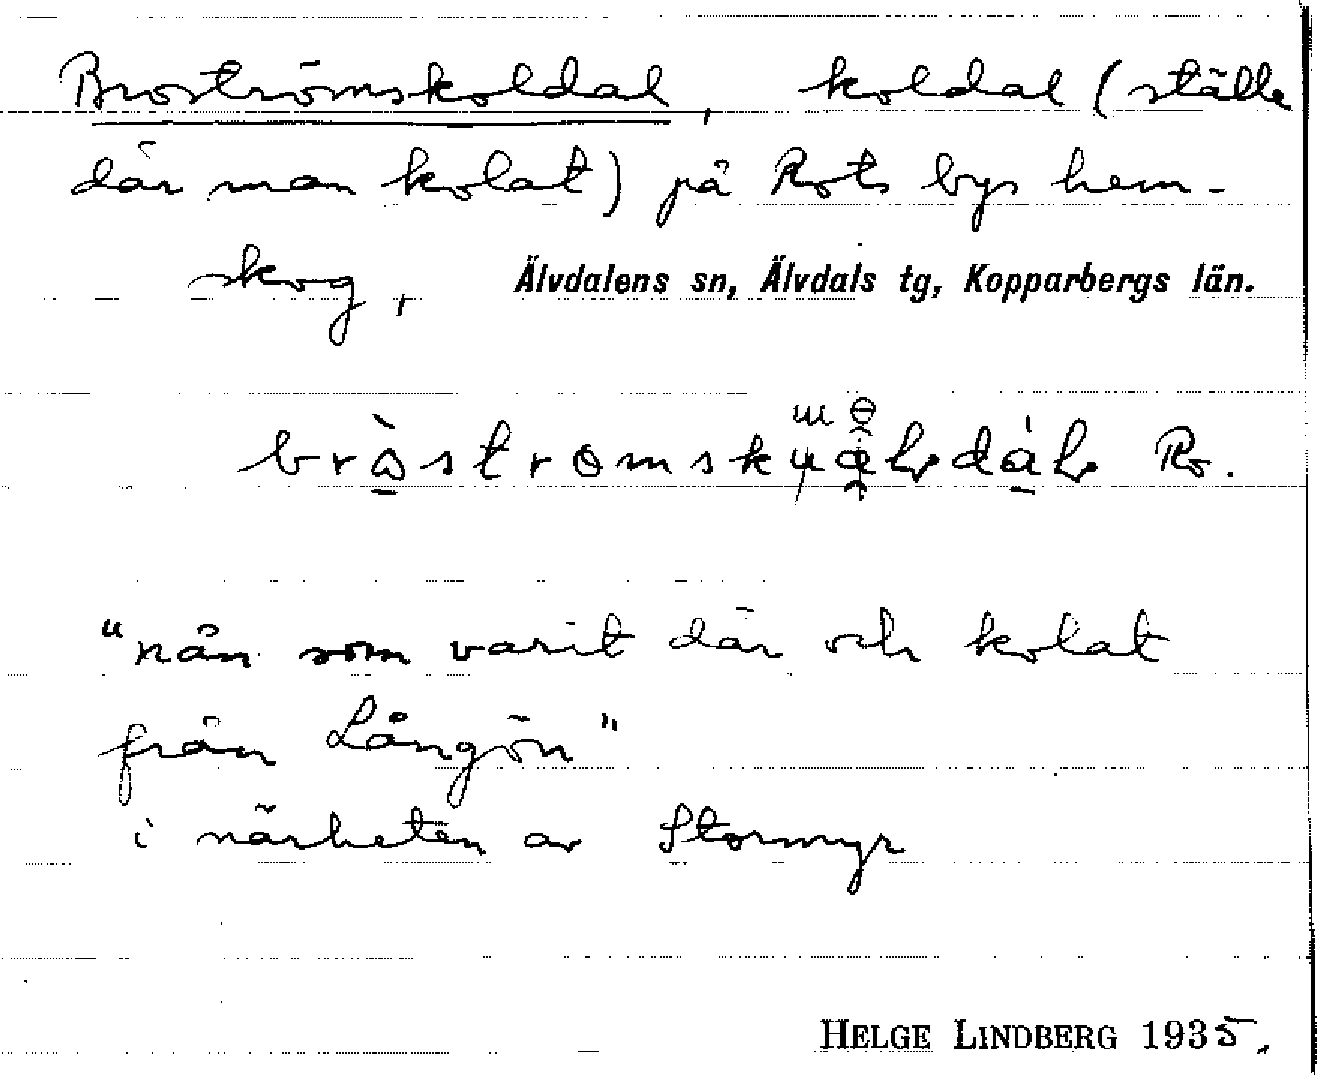 Broströmskoldal, koldal (ställe
där man kolat) på Rots bys hem-
skog, Älvdalens sn, Älvdals tg, Kopparbergs län.
Ro.
"nån som varit där och kolat
från Långön"
i närheten av Stormyr
HELGE LINDBERG 1935.